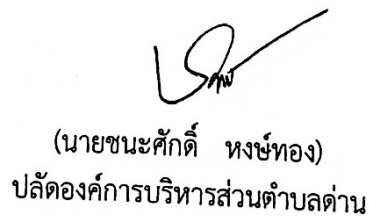 (นายชนะศักดิ์ หงษ์ทอง)
ปลัดองค์การบริหารส่วนตำบลด่าน